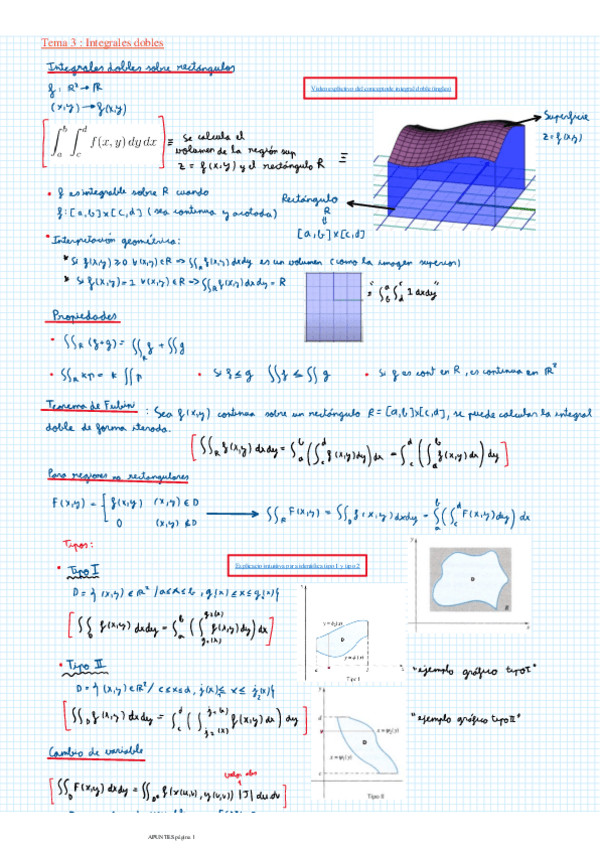 Tema 3 : Integrales dobles
Integrales dobles sobre rectángulos
Video explicativo del concepto de integral doble (ingles)
f : R² → R
(x,y) → f(x,y)
∫_a^b ∫_c^d f(x, y) dy dx ≡ Se calcula el
volumen de la región sup
z = f(x,y) y el rectángulo R ≡
Superficie
z = f(x,y)
Rectángulo
R
⇓
[a,b]x[c,d]
• f es integrable sobre R cuando
f: [a,b]x[c,d] (sea continua y acotada)
• Interpretación geométrica:
* Si f(x,y) ≥ 0 ∀(x,y)∈R → ∫∫_R f(x,y) dxdy es un volumen (como la imagen superior)
* Si f(x,y) = 1 ∀(x,y)∈R → ∫∫_R f(x,y) dxdy = R
Propiedades
• ∫∫_R (f+g) = ∫∫_R f + ∫∫ g
• Si f ≤ g ∫∫ f ≤ ∫∫ g
• Si f es cont en R, es continua en R²
Teorema de Fubini : Sea f(x,y) continua sobre un rectángulo R = [a,b]x[c,d], se puede calcular la integral
doble de forma iterada.
[∫∫_R f(x,y) dxdy = ∫_a^b (∫_c^d f(x,y) dy) dx = ∫_c^d (∫_a^b f(x,y) dx) dy]
Para regiones no rectangulares
F(x,y) = { f(x,y) (x,y) ∈ D
0 (x,y) ∉ D
→ ∫∫_R F(x,y) = ∫∫_D f(x,y) dxdy = ∫_a^b (∫_c^d F(x,y) dy) dx
Tipos:
• Tipo I
Explicacion intuitiva para identificar tipo 1 y tipo 2
D
R
y
x
D
Tipo I
"ejemplo gráfico tipo I"
• Tipo II
"ejemplo gráfico tipo II"
D
Tipo II
Cambio de variable
valor abs
[∫∫_D F(x,y) dxdy = ∫∫_D* f(x(u,v), y(u,v)) |J| du dv]
APUNTES página 1